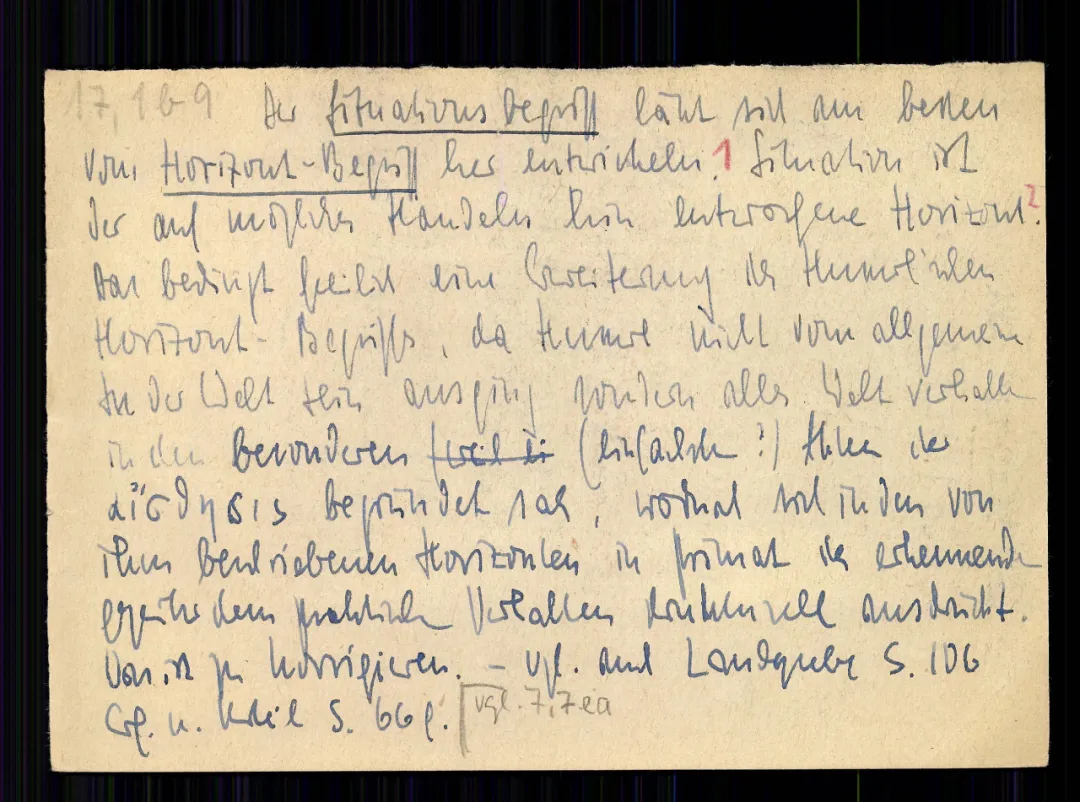 17,1b9 Der Situationsbegriff läßt sich am besten
vom Horizont-Begriff her entwickeln.1 Situation ist
der auf mögliches Handeln hin entworfene Horizont.2
Das bedingt freilich eine Erweiterung des Husserlschen
Horizont-Begriffs, da Husserl nicht vom allgemeinen
In der Welt sein ausging sondern alles Weltverhalten
in den besonderen weil er (einfachsten ?) Akten der
αἴσθησις begründet sah, wodurch sich in den von
ihm beschriebenen Horizonten ein Primat des erkennenden
gegenüber dem praktischen Verhalten strukturell ausdrückt.
Das ist zu korrigieren. – vgl. auch Landgrebe S. 106
Erf. u. Urteil S. 66f. vgl. 7,7ea